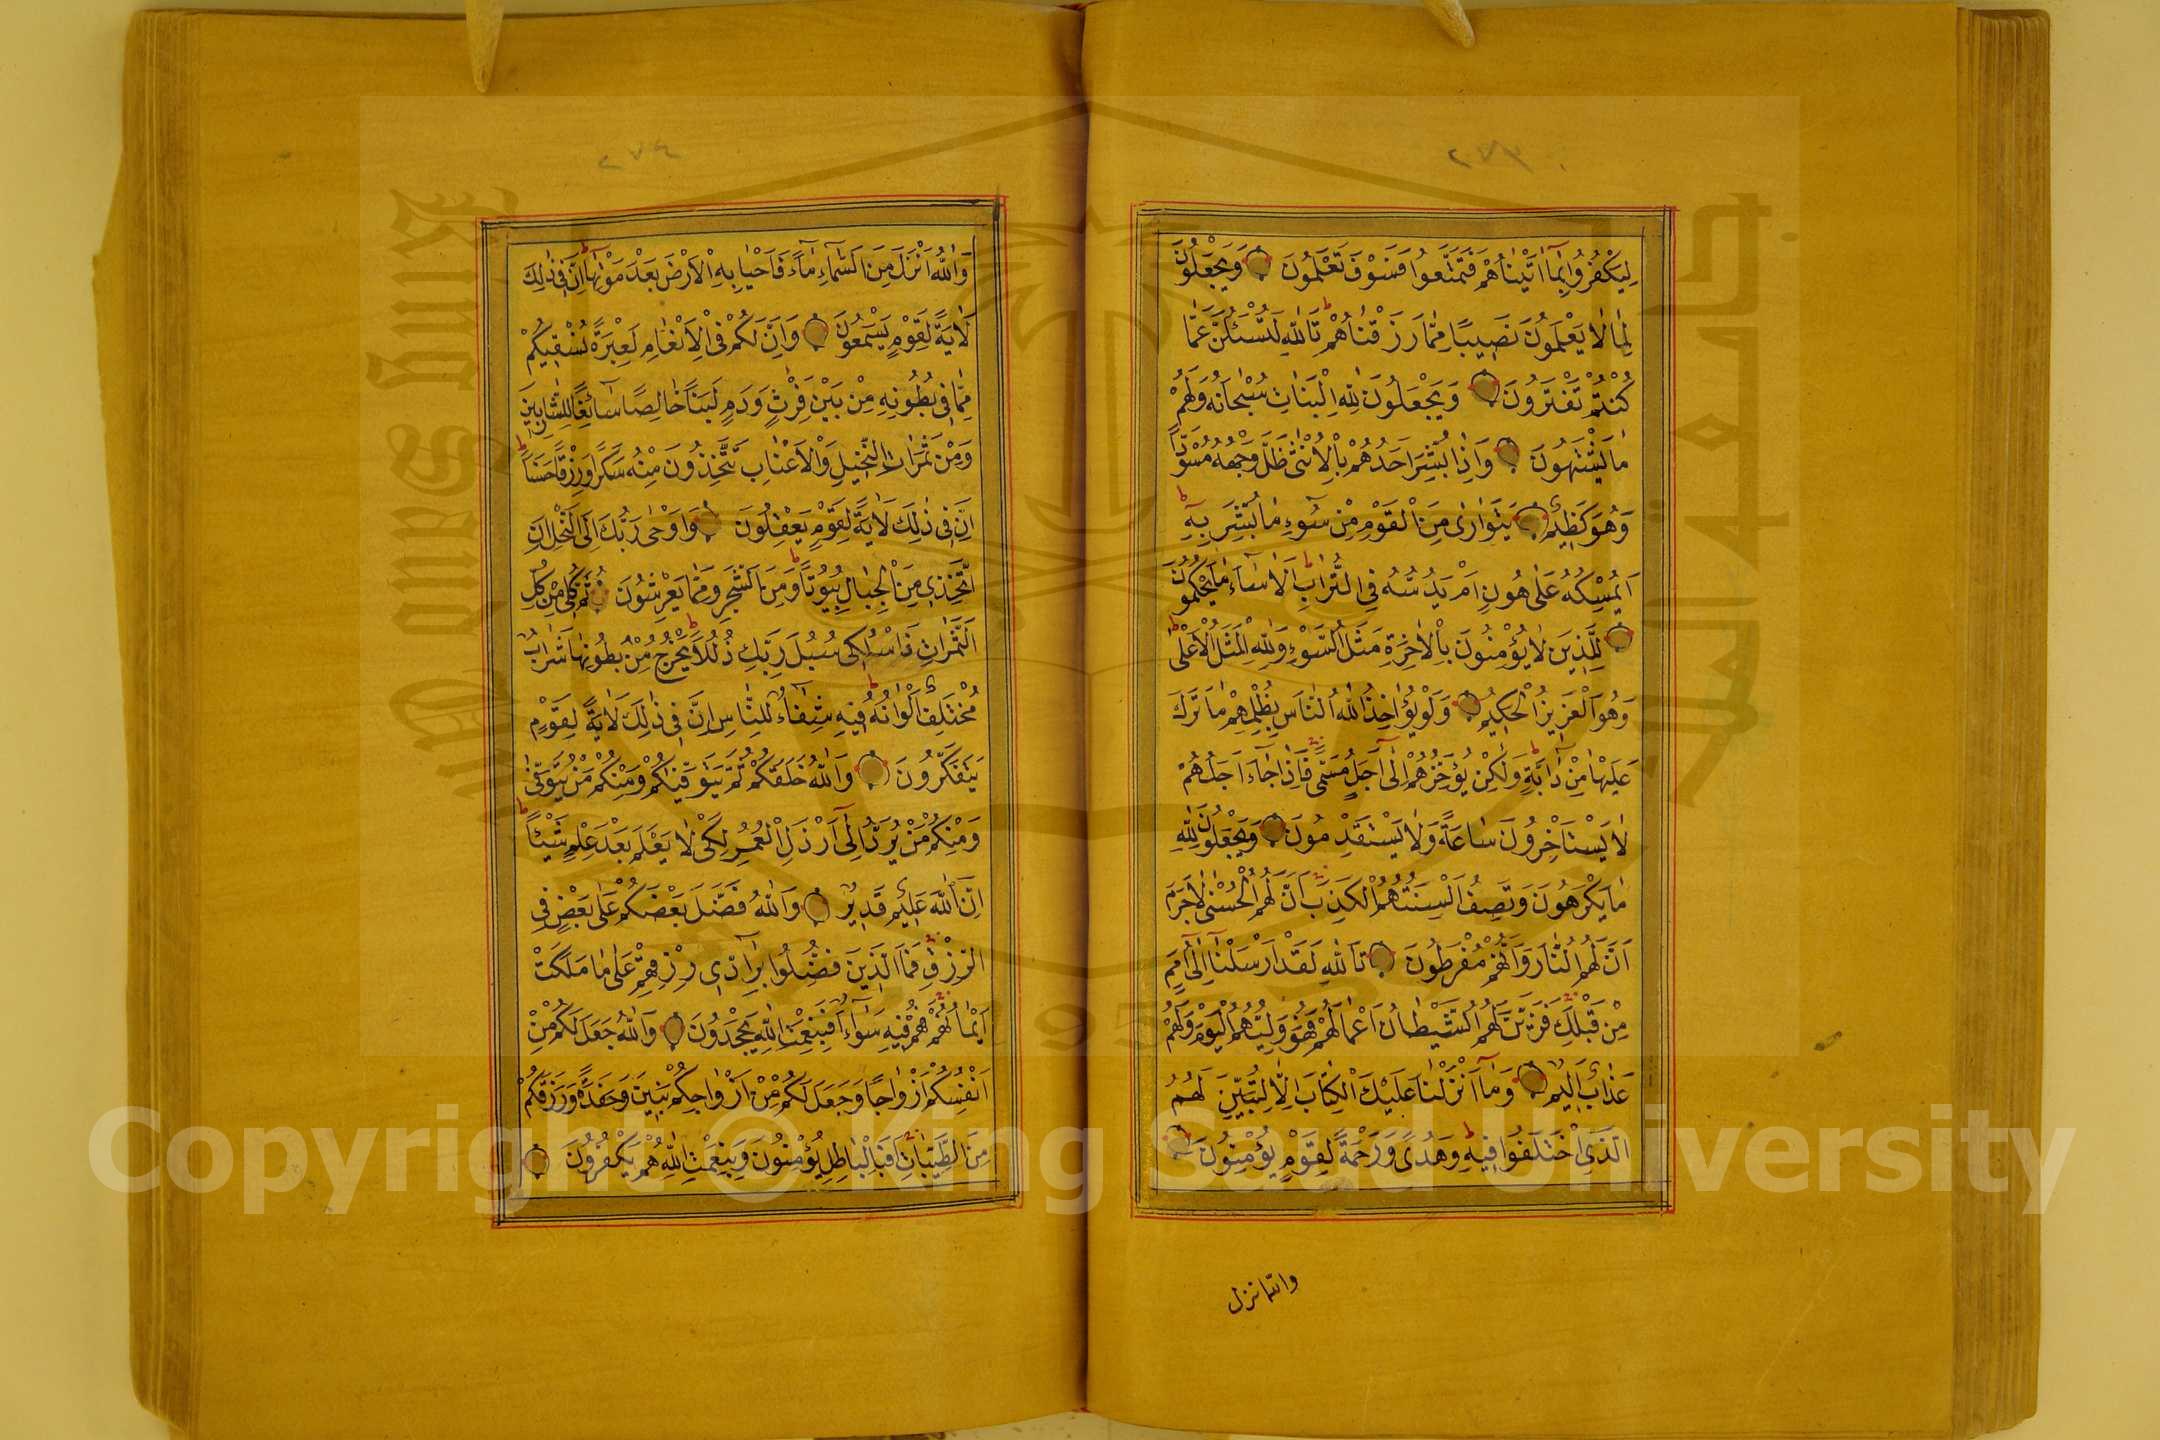 لِيَكْفُرُوا بِمَا اٰتَيْنَاهُمْ فَتَمَتَّعُوا فَسَوْفَ تَعْلَمُونَ وَيَجْعَلُونَ
لِمَا لَا يَعْلَمُونَ نَصِيبًا مِمَّا رَزَقْنَاهُمْ تَاللّٰهِ لَتُسْئَلُنَّ عَمَّا
كُنْتُمْ تَفْتَرُونَ وَيَجْعَلُونَ لِلّٰهِ الْبَنَاتِ سُبْحَانَهُ وَلَهُمْ
مَا يَشْتَهُونَ وَاِذَا بُشِّرَ اَحَدُهُمْ بِالْاُنْثٰى ظَلَّ وَجْهُهُ مُسْوَدًّا
وَهُوَ كَظِيمٌ يَتَوَارٰى مِنَ الْقَوْمِ مِنْ سُوءِ مَا بُشِّرَ بِهِ
اَيُمْسِكُهُ عَلٰى هُونٍ اَمْ يَدُسُّهُ فِي التُّرَابِ اَلَا سَاءَ مَا يَحْكُمُونَ
لِلَّذِينَ لَا يُؤْمِنُونَ بِالْاٰخِرَةِ مَثَلُ السَّوْءِ وَلِلّٰهِ الْمَثَلُ الْاَعْلٰى
وَهُوَ الْعَزِيزُ الْحَكِيمُ وَلَوْ يُؤَاخِذُ اللّٰهُ النَّاسَ بِظُلْمِهِمْ مَا تَرَكَ
عَلَيْهَا مِنْ دَابَّةٍ وَلٰكِنْ يُؤَخِّرُهُمْ اِلٰى اَجَلٍ مُسَمًّى فَاِذَا جَاءَ اَجَلُهُمْ
لَا يَسْتَاْخِرُونَ سَاعَةً وَلَا يَسْتَقْدِمُونَ وَيَجْعَلُونَ لِلّٰهِ
مَا يَكْرَهُونَ وَتَصِفُ اَلْسِنَتُهُمُ الْكَذِبَ اَنَّ لَهُمُ الْحُسْنٰى لَا جَرَمَ
اَنَّ لَهُمُ النَّارَ وَاَنَّهُمْ مُفْرَطُونَ تَاللّٰهِ لَقَدْ اَرْسَلْنَا اِلٰى اُمَمٍ
مِنْ قَبْلِكَ فَزَيَّنَ لَهُمُ الشَّيْطَانُ اَعْمَالَهُمْ فَهُوَ وَلِيُّهُمُ الْيَوْمَ وَلَهُمْ
عَذَابٌ اَلِيمٌ وَمَا اَنْزَلْنَا عَلَيْكَ الْكِتَابَ اِلَّا لِتُبَيِّنَ لَهُمُ
الَّذِي اخْتَلَفُوا فِيهِ وَهُدًى وَرَحْمَةً لِقَوْمٍ يُؤْمِنُونَ
والله انزل
وَاللّٰهُ اَنْزَلَ مِنَ السَّمَاءِ مَاءً فَاَحْيَا بِهِ الْاَرْضَ بَعْدَ مَوْتِهَا اِنَّ فِي ذٰلِكَ
لَاٰيَةً لِقَوْمٍ يَسْمَعُونَ وَاِنَّ لَكُمْ فِي الْاَنْعَامِ لَعِبْرَةً نُسْقِيكُمْ
مِمَّا فِي بُطُونِهِ مِنْ بَيْنِ فَرْثٍ وَدَمٍ لَبَنًا خَالِصًا سَائِغًا لِلشَّارِبِينَ
وَمِنْ ثَمَرَاتِ النَّخِيلِ وَالْاَعْنَابِ تَتَّخِذُونَ مِنْهُ سَكَرًا وَرِزْقًا حَسَنًا
اِنَّ فِي ذٰلِكَ لَاٰيَةً لِقَوْمٍ يَعْقِلُونَ وَاَوْحٰى رَبُّكَ اِلَى النَّحْلِ اَنِ
اتَّخِذِي مِنَ الْجِبَالِ بُيُوتًا وَمِنَ الشَّجَرِ وَمِمَّا يَعْرِشُونَ ثُمَّ كُلِي مِنْ كُلِّ
الثَّمَرَاتِ فَاسْلُكِي سُبُلَ رَبِّكِ ذُلُلًا يَخْرُجُ مِنْ بُطُونِهَا شَرَابٌ
مُخْتَلِفٌ اَلْوَانُهُ فِيهِ شِفَاءٌ لِلنَّاسِ اِنَّ فِي ذٰلِكَ لَاٰيَةً لِقَوْمٍ
يَتَفَكَّرُونَ وَاللّٰهُ خَلَقَكُمْ ثُمَّ يَتَوَفّٰيكُمْ وَمِنْكُمْ مَنْ يُتَوَفّٰى
وَمِنْكُمْ مَنْ يُرَدُّ اِلٰى اَرْذَلِ الْعُمُرِ لِكَيْ لَا يَعْلَمَ بَعْدَ عِلْمٍ شَيْئًا
اِنَّ اللّٰهَ عَلِيمٌ قَدِيرٌ وَاللّٰهُ فَضَّلَ بَعْضَكُمْ عَلٰى بَعْضٍ فِي
الرِّزْقِ فَمَا الَّذِينَ فُضِّلُوا بِرَادِّي رِزْقِهِمْ عَلٰى مَا مَلَكَتْ
اَيْمَانُهُمْ فَهُمْ فِيهِ سَوَاءٌ اَفَبِنِعْمَةِ اللّٰهِ يَجْحَدُونَ وَاللّٰهُ جَعَلَ لَكُمْ مِنْ
اَنْفُسِكُمْ اَزْوَاجًا وَجَعَلَ لَكُمْ مِنْ اَزْوَاجِكُمْ بَنِينَ وَحَفَدَةً وَرَزَقَكُمْ
مِنَ الطَّيِّبَاتِ اَفَبِالْبَاطِلِ يُؤْمِنُونَ وَبِنِعْمَتِ اللّٰهِ هُمْ يَكْفُرُونَ
Copyright © King Saud University